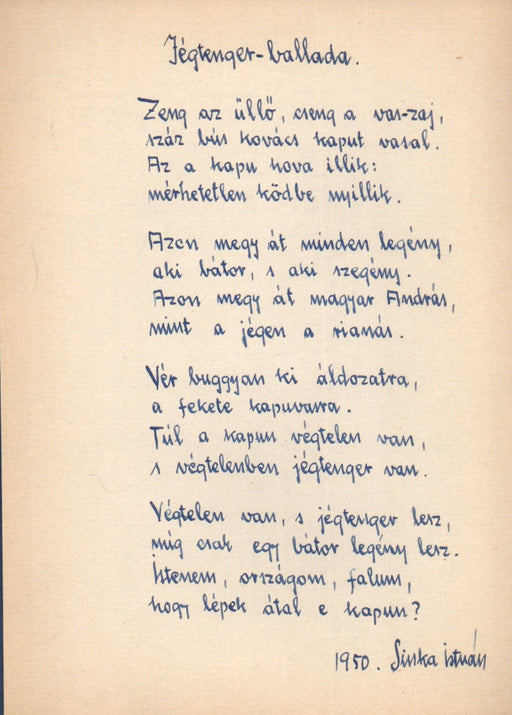 Jégtenger-ballada.
Zeng az üllő, cseng a vas-zaj,
száz bús kovács kaput vasal.
Az a kapu hova illik:
mérhetetlen ködbe nyillik.
Azon megy át minden legény,
aki bátor, s aki szegény.
Azon megy át magyar András,
mint a jégen a rianás.
Vér buggyan ki áldozatra,
a fekete kapuvasra.
Túl a kapun végtelen van,
s végtelenben jégtenger van.
Végtelen van, s jégtenger lesz,
míg csak egy bátor legény lesz.
Istenem, országom, falum,
hogy lépek átal e kapun?
1950. Sinka István